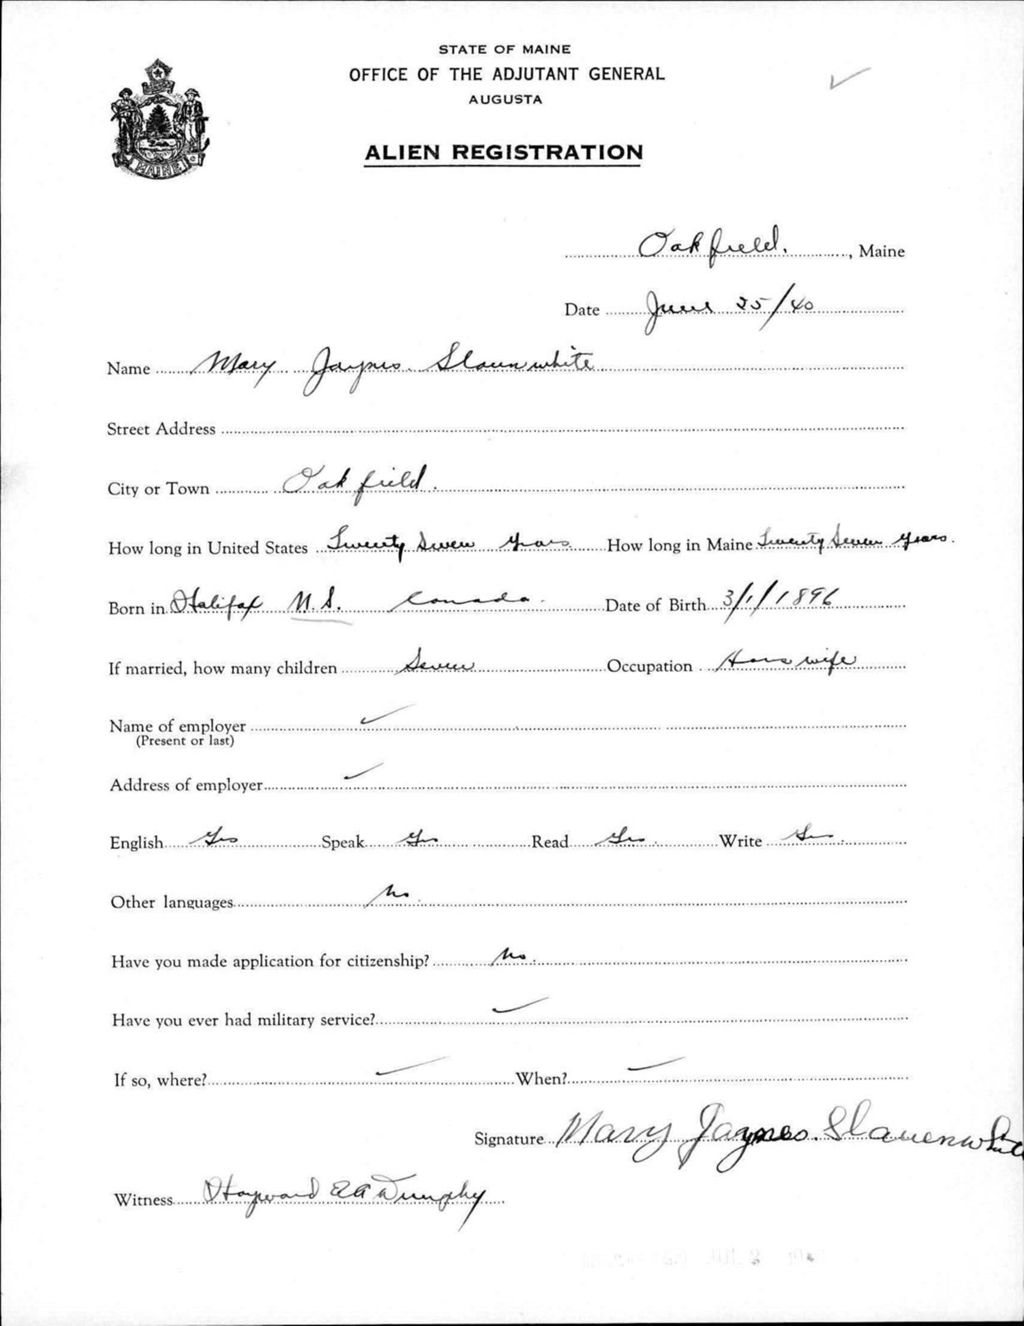 STATE OF MAINE
OFFICE OF THE ADJUTANT GENERAL
AUGUSTA
ALIEN REGISTRATION
MAINE
Oakfield, Maine
Date June 25/40
Name Mary Jaynes Slaunwhite
Street Address
City or Town Oakfield.
How long in United States Twenty Seven Years How long in Maine Twenty Seven years.
Born in Halifax N.S. Canada. Date of Birth 3/1/1896
If married, how many children Seven Occupation House wife
Name of employer
(Present or last)
Address of employer
English Yes Speak Yes Read Yes Write Yes
Other languages No.
Have you made application for citizenship? No.
Have you ever had military service?
If so, where? When?
Signature Mary Jaynes. Slauenwhite
Witness Hayward Dumphy